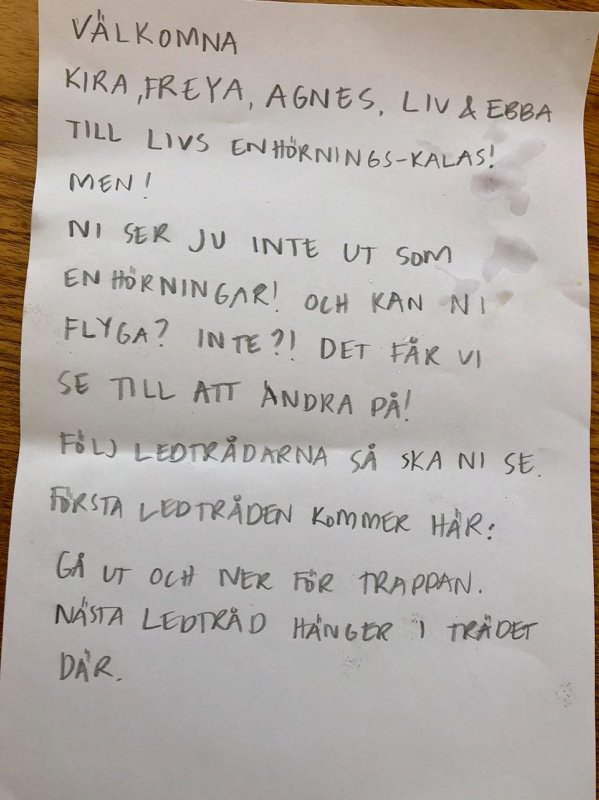 VÄLKOMNA
KIRA, FREYA, AGNES, LIV & EBBA
TILL LIVS ENHÖRNINGS-KALAS!
MEN!
NI SER JU INTE UT SOM
ENHÖRNINGAR! OCH KAN NI
FLYGA? INTE?! DET FÅR VI
SE TILL ATT ÄNDRA PÅ!
FÖLJ LEDTRÅDARNA SÅ SKA NI SE.
FÖRSTA LEDTRÅDEN KOMMER HÄR:
GÅ UT OCH NER FÖR TRAPPAN.
NÄSTA LEDTRÅD HÄNGER I TRÄDET
DÄR.